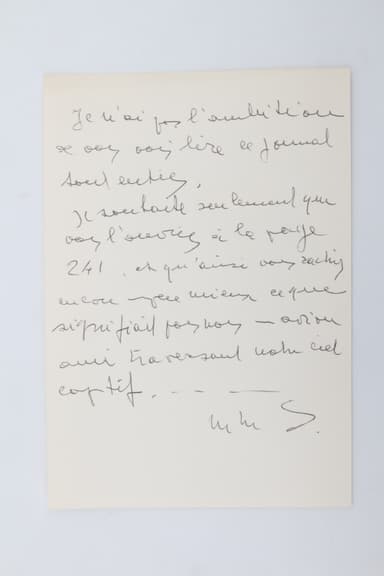 Je n'ai pas l'ambition
de vous voir lire ce journal
tout entier.
Je souhaite seulement que
vous l'ouvriez à la page
241. et qu'ainsi vous sachiez
encore un peu mieux ce que
signifiait pour nous — avion
ami traversant notre ciel
captif. -- — —